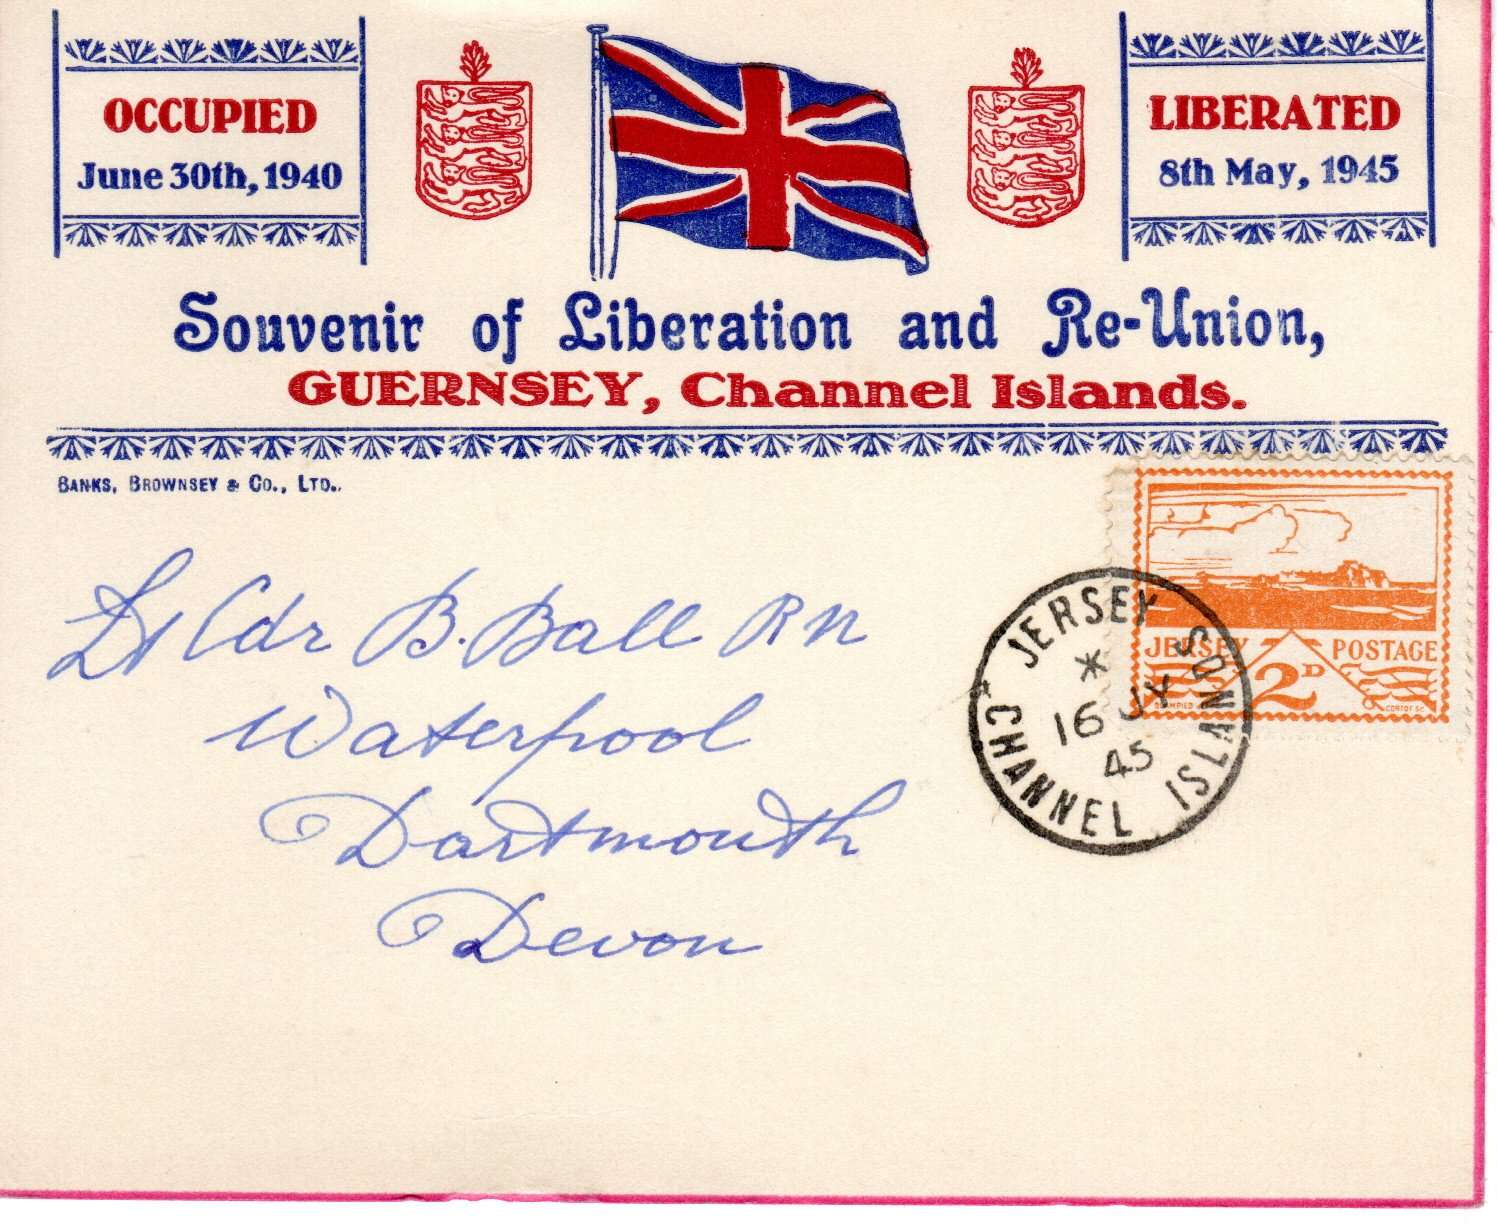 OCCUPIED
June 30th, 1940
LIBERATED
8th May, 1945
Souvenir of Liberation and Re-Union,
GUERNSEY, Channel Islands.
BANKS, BROWNSEY & CO., LTD.,
JERSEY POSTAGE
2D
CORTOT SC
JERSEY
CHANNEL ISLANDS
16 JY
45
Lt Cdr B. Ball RN
Waterpool
Dartmouth
Devon